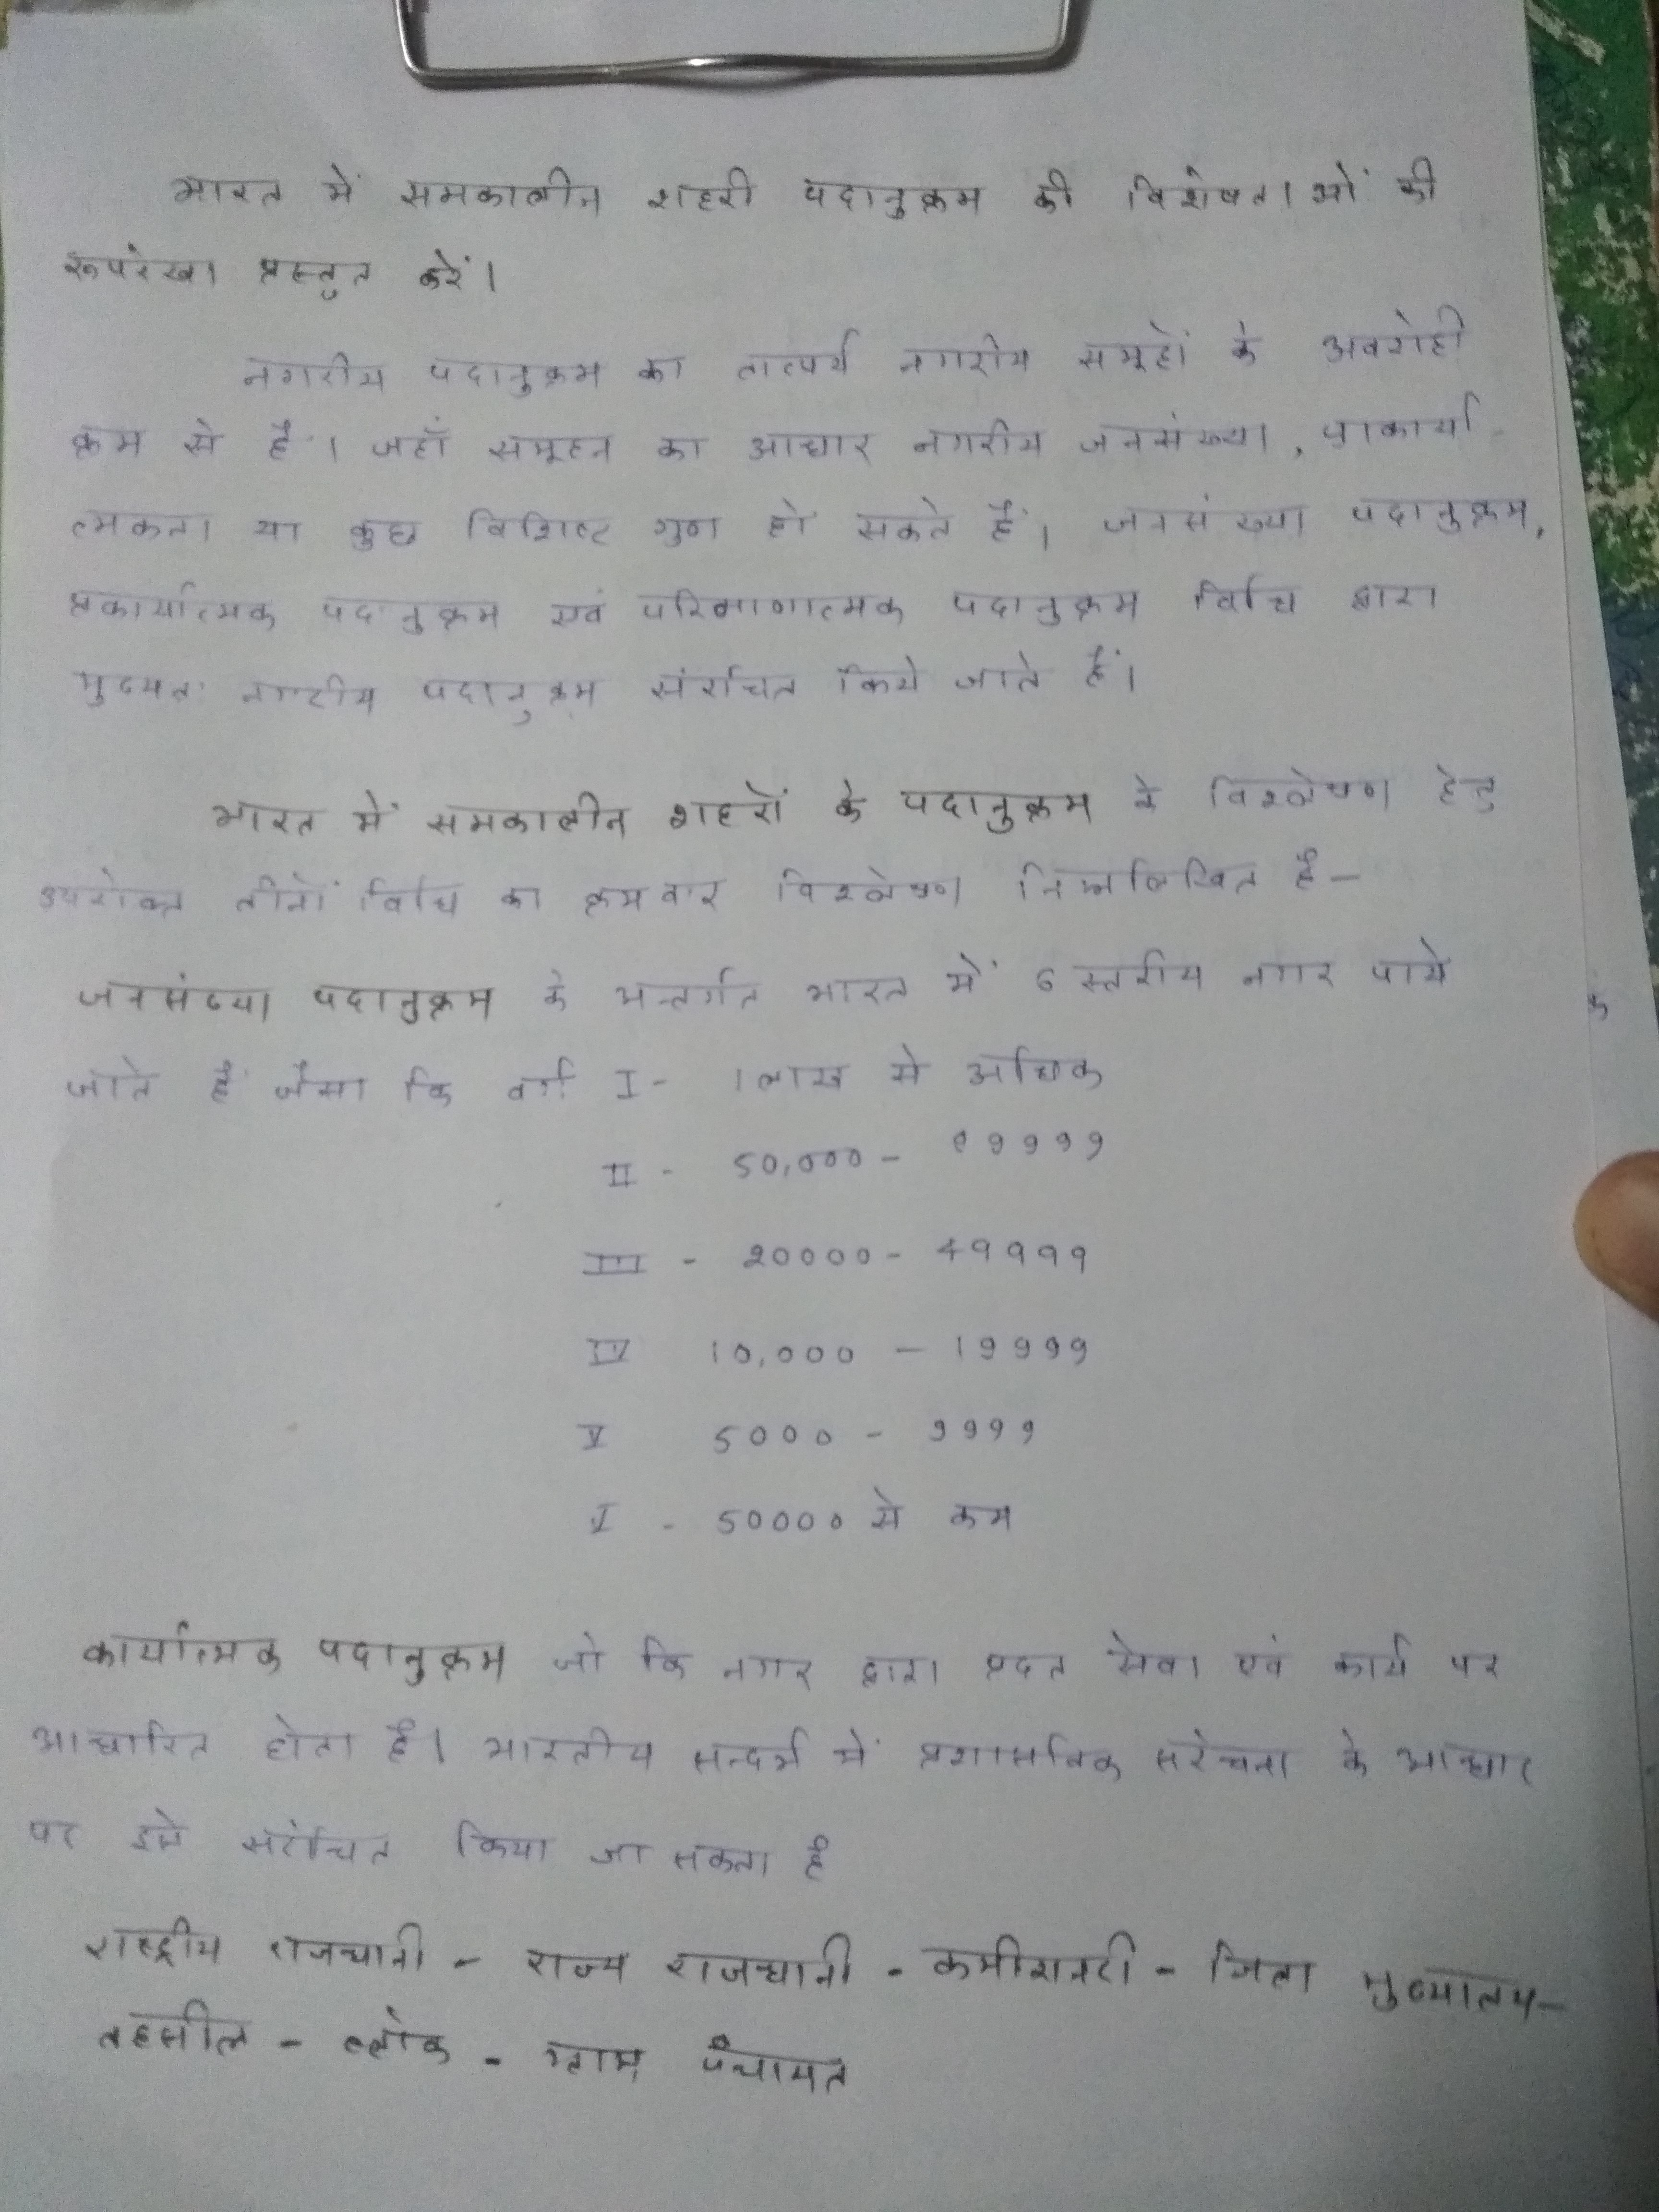 भारत में समकालीन शहरी पदानुक्रम की विशेषताओं की
रूपरेखा प्रस्तुत करें।
नगरीय पदानुक्रम का तात्पर्य नगरीय समूहों के अवरोही
क्रम से है । जहाँ समूहन का आधार नगरीय जनसंख्या, प्रकार्या-
त्मकता या कुछ विशिष्ट गुण हो सकते हैं। जनसंख्या पदानुक्रम,
प्रकार्यात्मक पदानुक्रम एवं परिमाणात्मक पदानुक्रम विधि द्वारा
मुख्यतः नगरीय पदानुक्रम संरचित किये जाते हैं।
भारत में समकालीन शहरों के पदानुक्रम के विश्लेषण हेतु
उपरोक्त तीनों विधि का क्रमवार विश्लेषण निम्नलिखित है -
जनसंख्या पदानुक्रम के अन्तर्गत भारत में 6 स्तरीय नगर पाये
जाते हैं जैसा कि वर्ग I - 1 लाख से अधिक
II - 50,000 - 99999
III - 20000 - 49999
IV 10,000 - 19999
V 5000 - 9999
V - 50000 से कम
कार्यात्मक पदानुक्रम जो कि नगर द्वारा प्रदत सेवा एवं कार्य पर
आधारित होता है। भारतीय सन्दर्भ में प्रशासनिक संरचना के आधार
पर इसे संरचित किया जा सकता है
राष्ट्रीय राजधानी - राज्य राजधानी - कमीशनरी - जिला मुख्यालय -
तहसील - ब्लोक - ग्राम पंचायत
के